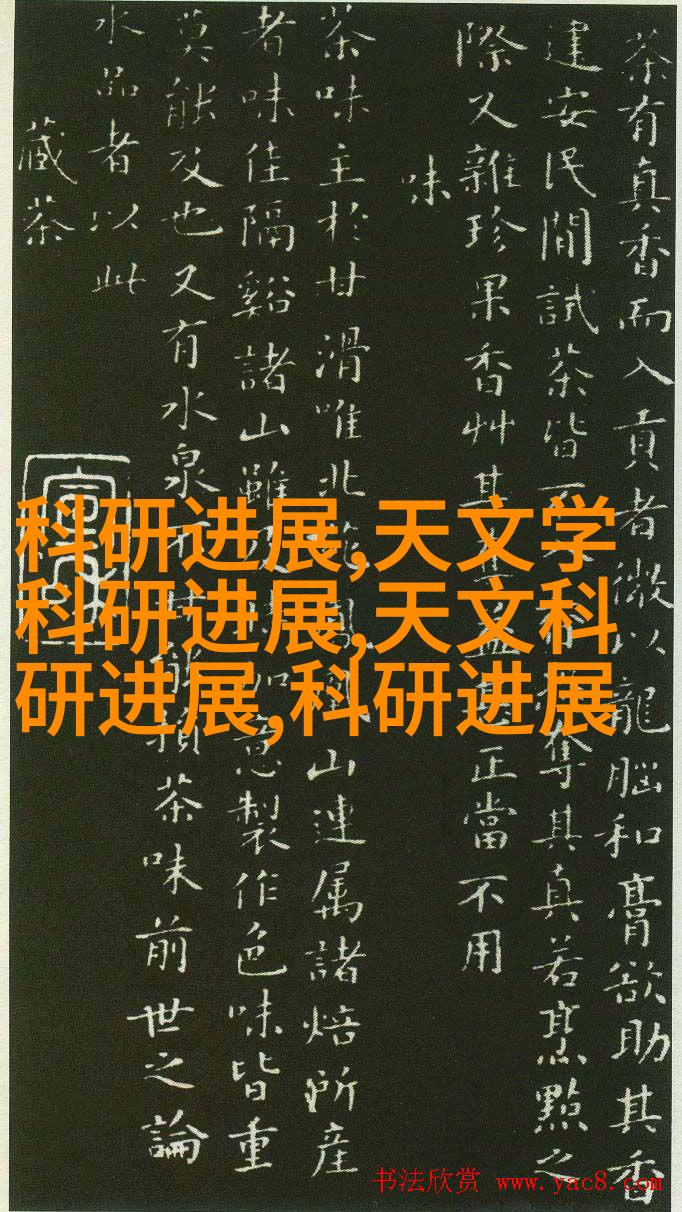 茶有真香而入貢者微以龍腦和膏欲助其香
建安民間試茶皆奪其真若烹點之
際又雜珍果香艸其正當不用
味
茶味主於甘滑唯北山連属諸焙所産
者味佳隔谿諸山雖意製作色味皆重
莫能及也又有水泉損茶味前世之論
水品者以此
藏茶
科研进展,天文学
科研进展,天文科
研进展,科研进展
书法欣赏 www.yac8.com